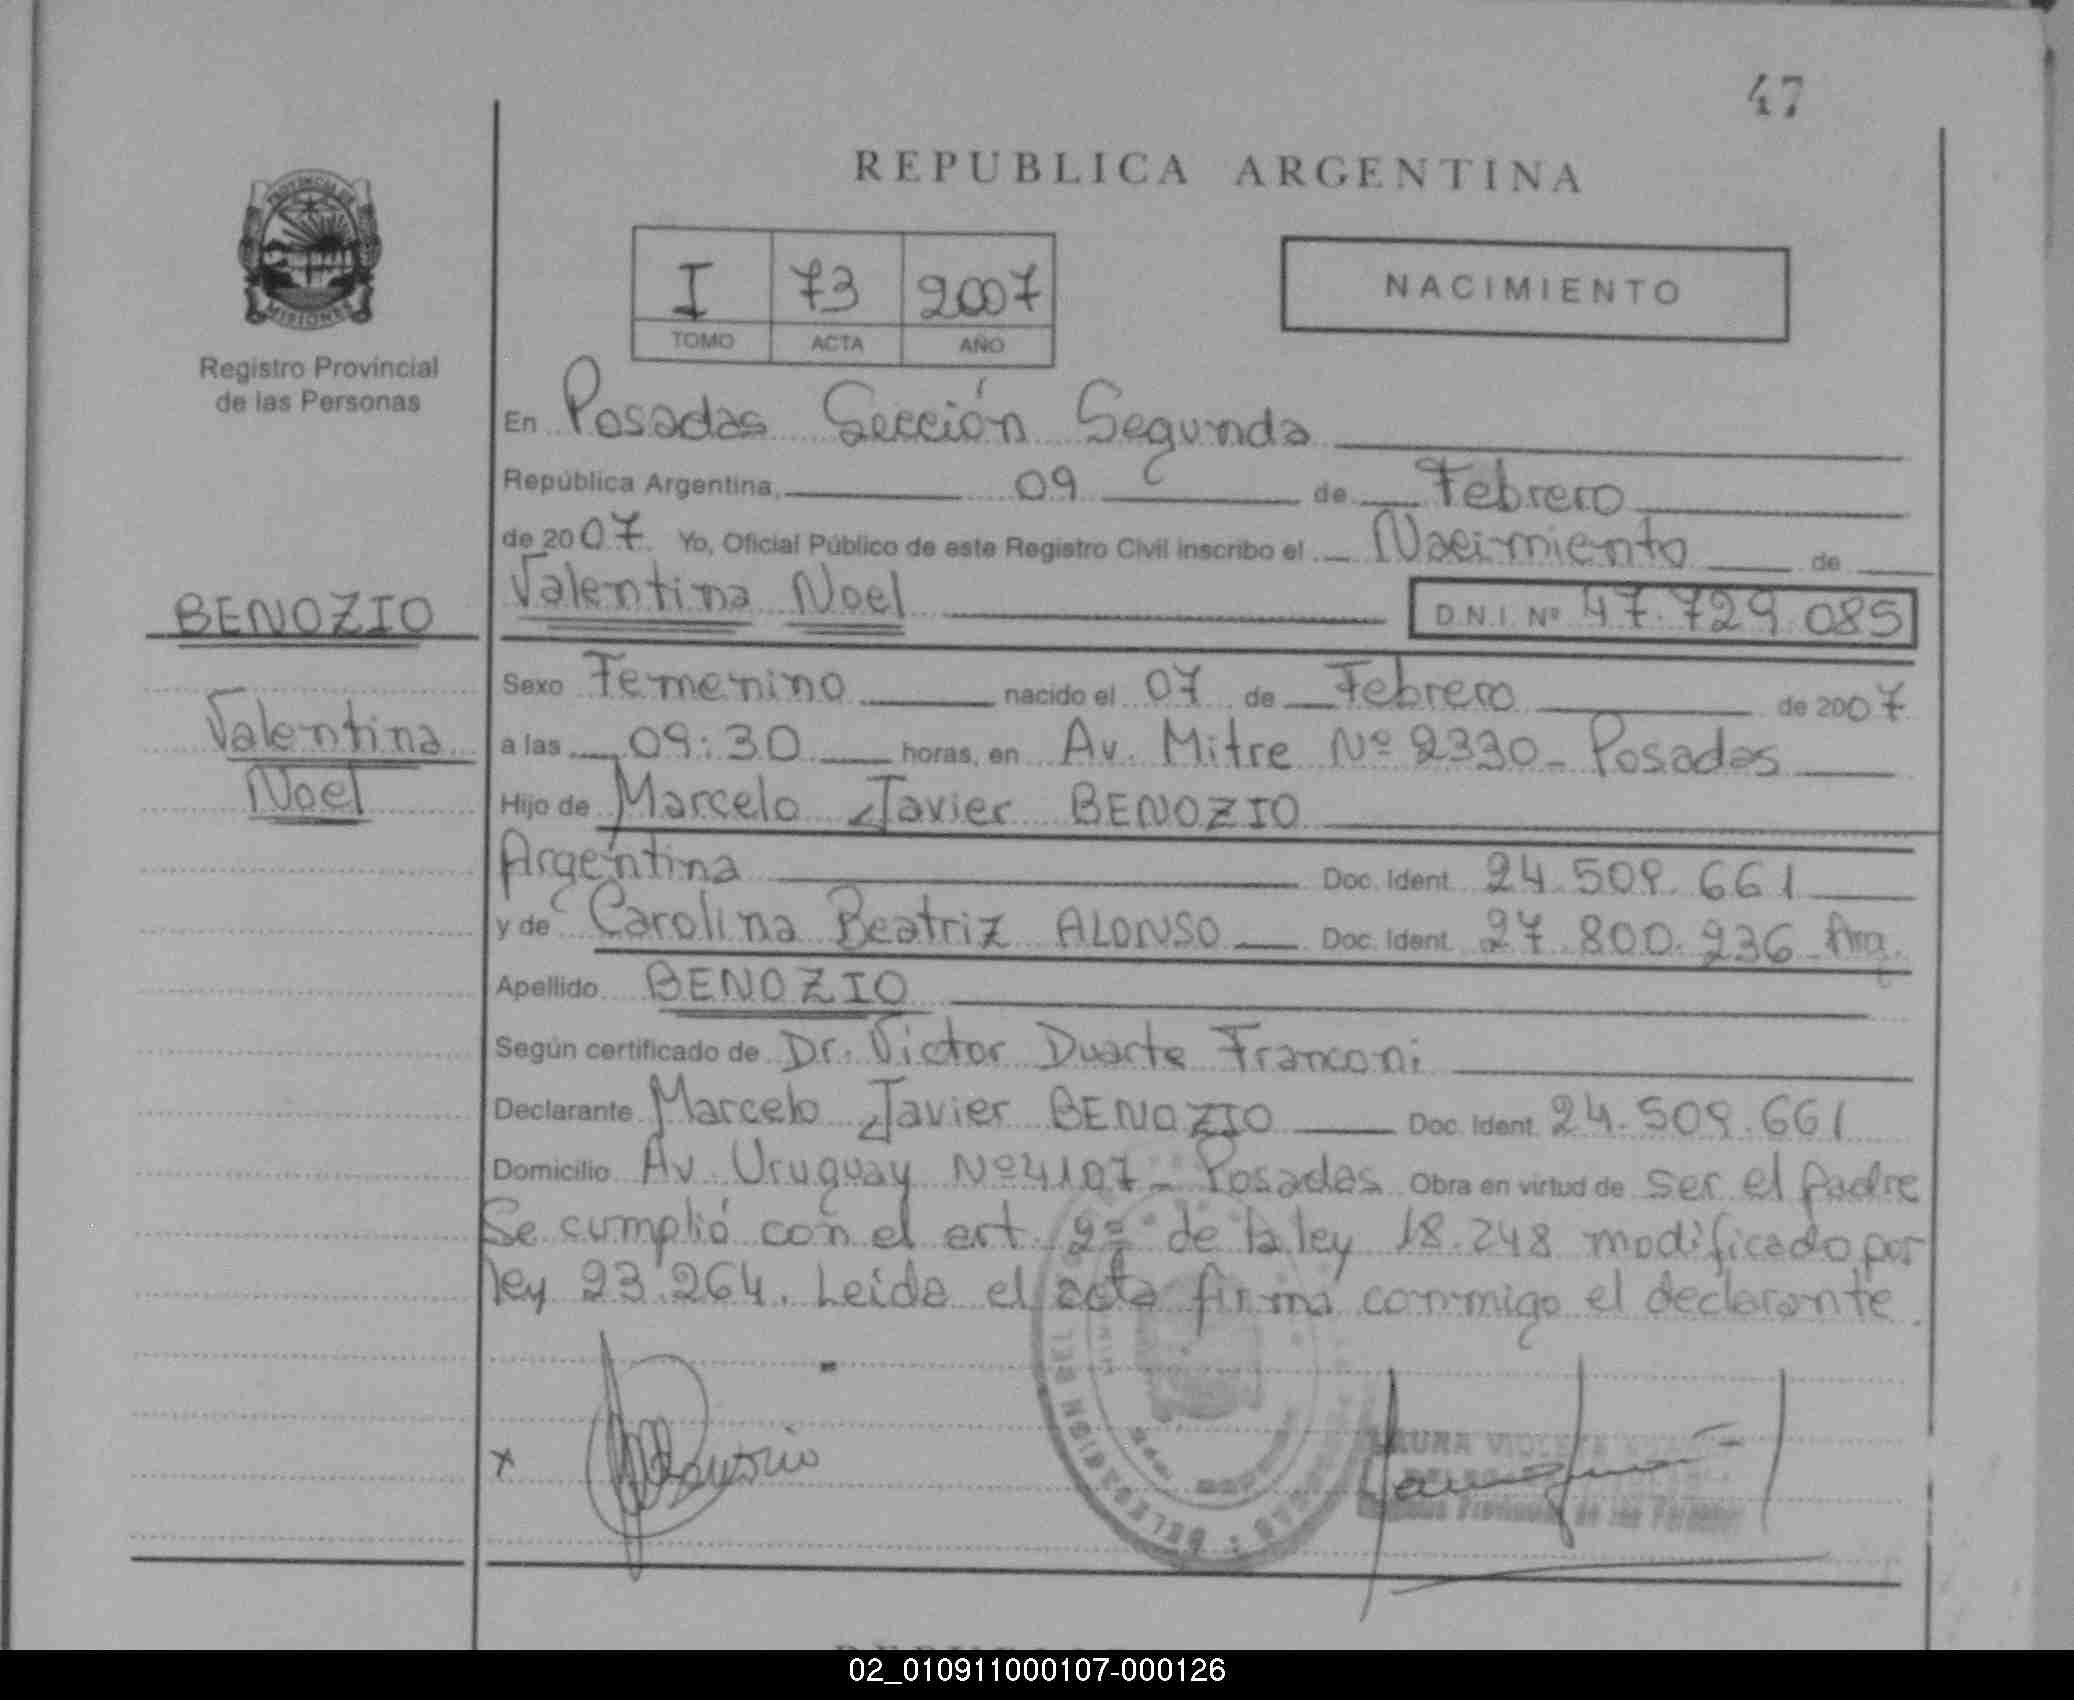 47
REPUBLICA ARGENTINA
PROVINCIA DE
MISIONES
Registro Provincial
de las Personas
I 73 2007
TOMO ACTA AÑO
NACIMIENTO
En Posadas Sección Segunda
República Argentina, 09 de Febrero
de 2007 Yo, Oficial Público de este Registro Civil inscribo el Nacimiento de
BENOZIO
Valentina Noel D.N.I. Nº 47.729.085
Sexo Femenino nacido el 07 de Febrero de 2007
Valentina
Noel
a las 09:30 horas, en Av. Mitre Nº 2330 - Posadas
Hijo de Marcelo Javier BENOZIO
Argentina Doc. Ident. 24.509.661
y de Carolina Beatriz ALONSO Doc. Ident. 27.800.236 - Arg.
Apellido BENOZIO
Según certificado de Dr. Victor Duarte Franconi
Declarante Marcelo Javier BENOZIO Doc. Ident. 24.509.661
Domicilio Av. Uruguay Nº 4107 - Posadas Obra en virtud de ser el padre
Se cumplió con el art. 2º de la ley 18.248 modificado por
ley 23.264. Leida el acta firma conmigo el declarante.
x
02_010911000107-000126